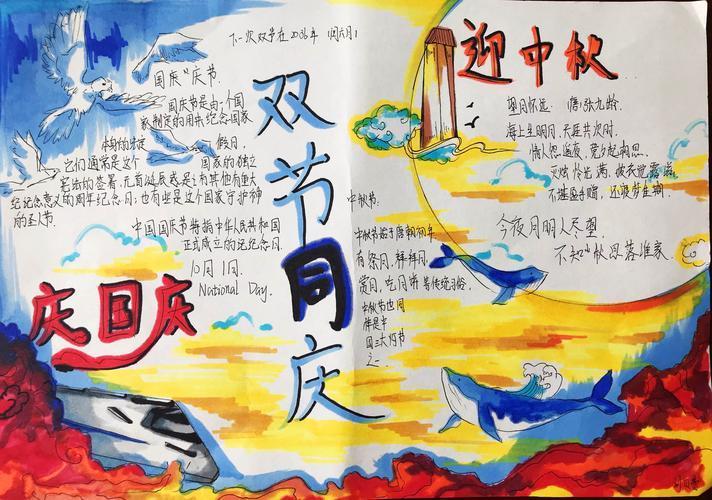 下一次双节在2036年
国庆"庆节
国庆节是由一个国
家制定的用来纪念国家
本身的法定 假日.
它们通常是这个 国家的独立
宪法的签署,元首诞辰或是有其他有重大
纪念意义的周年纪念日;也有些是这个国家守护神
的圣人节.
中国国庆节特指中华人民共和国
正式成立的纪念日.
10月1日.
National Day.
庆国庆
双节同庆
迎中秋
望月怀远 唐:张九龄.
海上生明月,天涯共次时.
情人怨遥夜,竟夕起相思.
灭烛怜光满,披衣觉露滋
不堪盈手赠,还寝梦佳期.
今夜月明人尽望
不知秋思落谁家.
中秋节:
中秋节始于唐朝初年
有祭月、拜月、
赏月、吃月饼等传统习俗.
中秋节也同
样是中
国三大灯节
之一